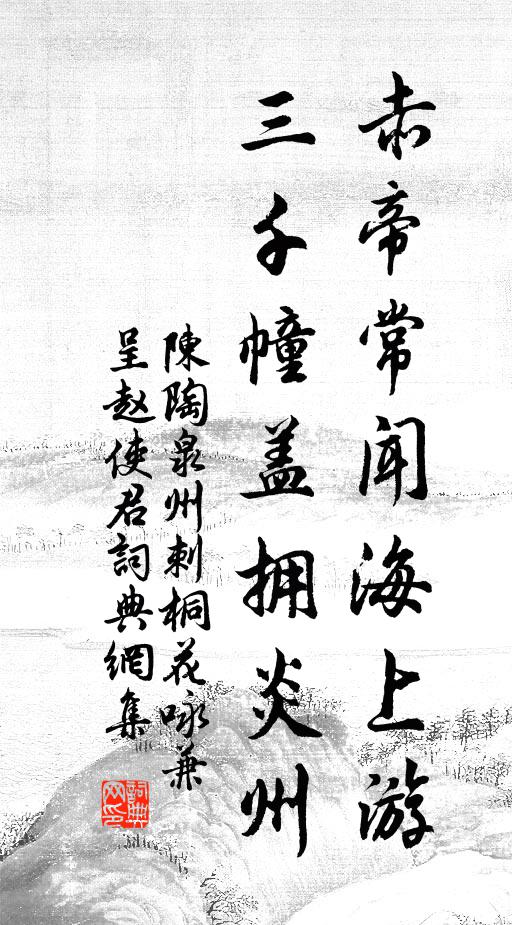 赤帝常闻海上游
三千幢盖拥炎州
陳陶泉州刺桐花咏兼
呈赵使君詞典網集
詞典网印